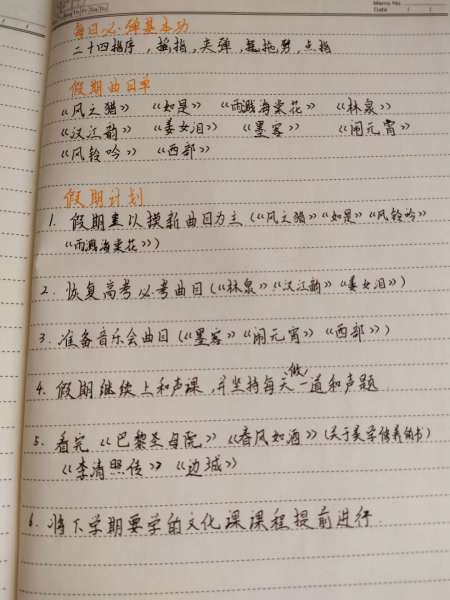 Memo No.
Date / /
每日必弹基本功
二十四指序，摇指，夹弹，托劈，点指
假期曲目单
《风之猎》 《如是》 《雨溅海棠花》 《林泉》
《汉江韵》 《姜女泪》 《墨客》 《闹元宵》
《风铃吟》 《西部》
假期计划
1. 假期主以摸新曲目为主（《风之猎》《如是》《风铃吟》
《雨溅海棠花》）
2. 恢复高考必考曲目（《林泉》《汉江韵》《姜女泪》）
3. 准备音乐会曲目（《墨客》《闹元宵》《西部》）
4. 假期继续上和声课，并坚持每天做一道和声题
5. 看完《巴黎圣母院》《春风如酒》（关于美学修养的书）
《李清照传》 《边城》
6. 将下学期要学的文化课课程提前进行